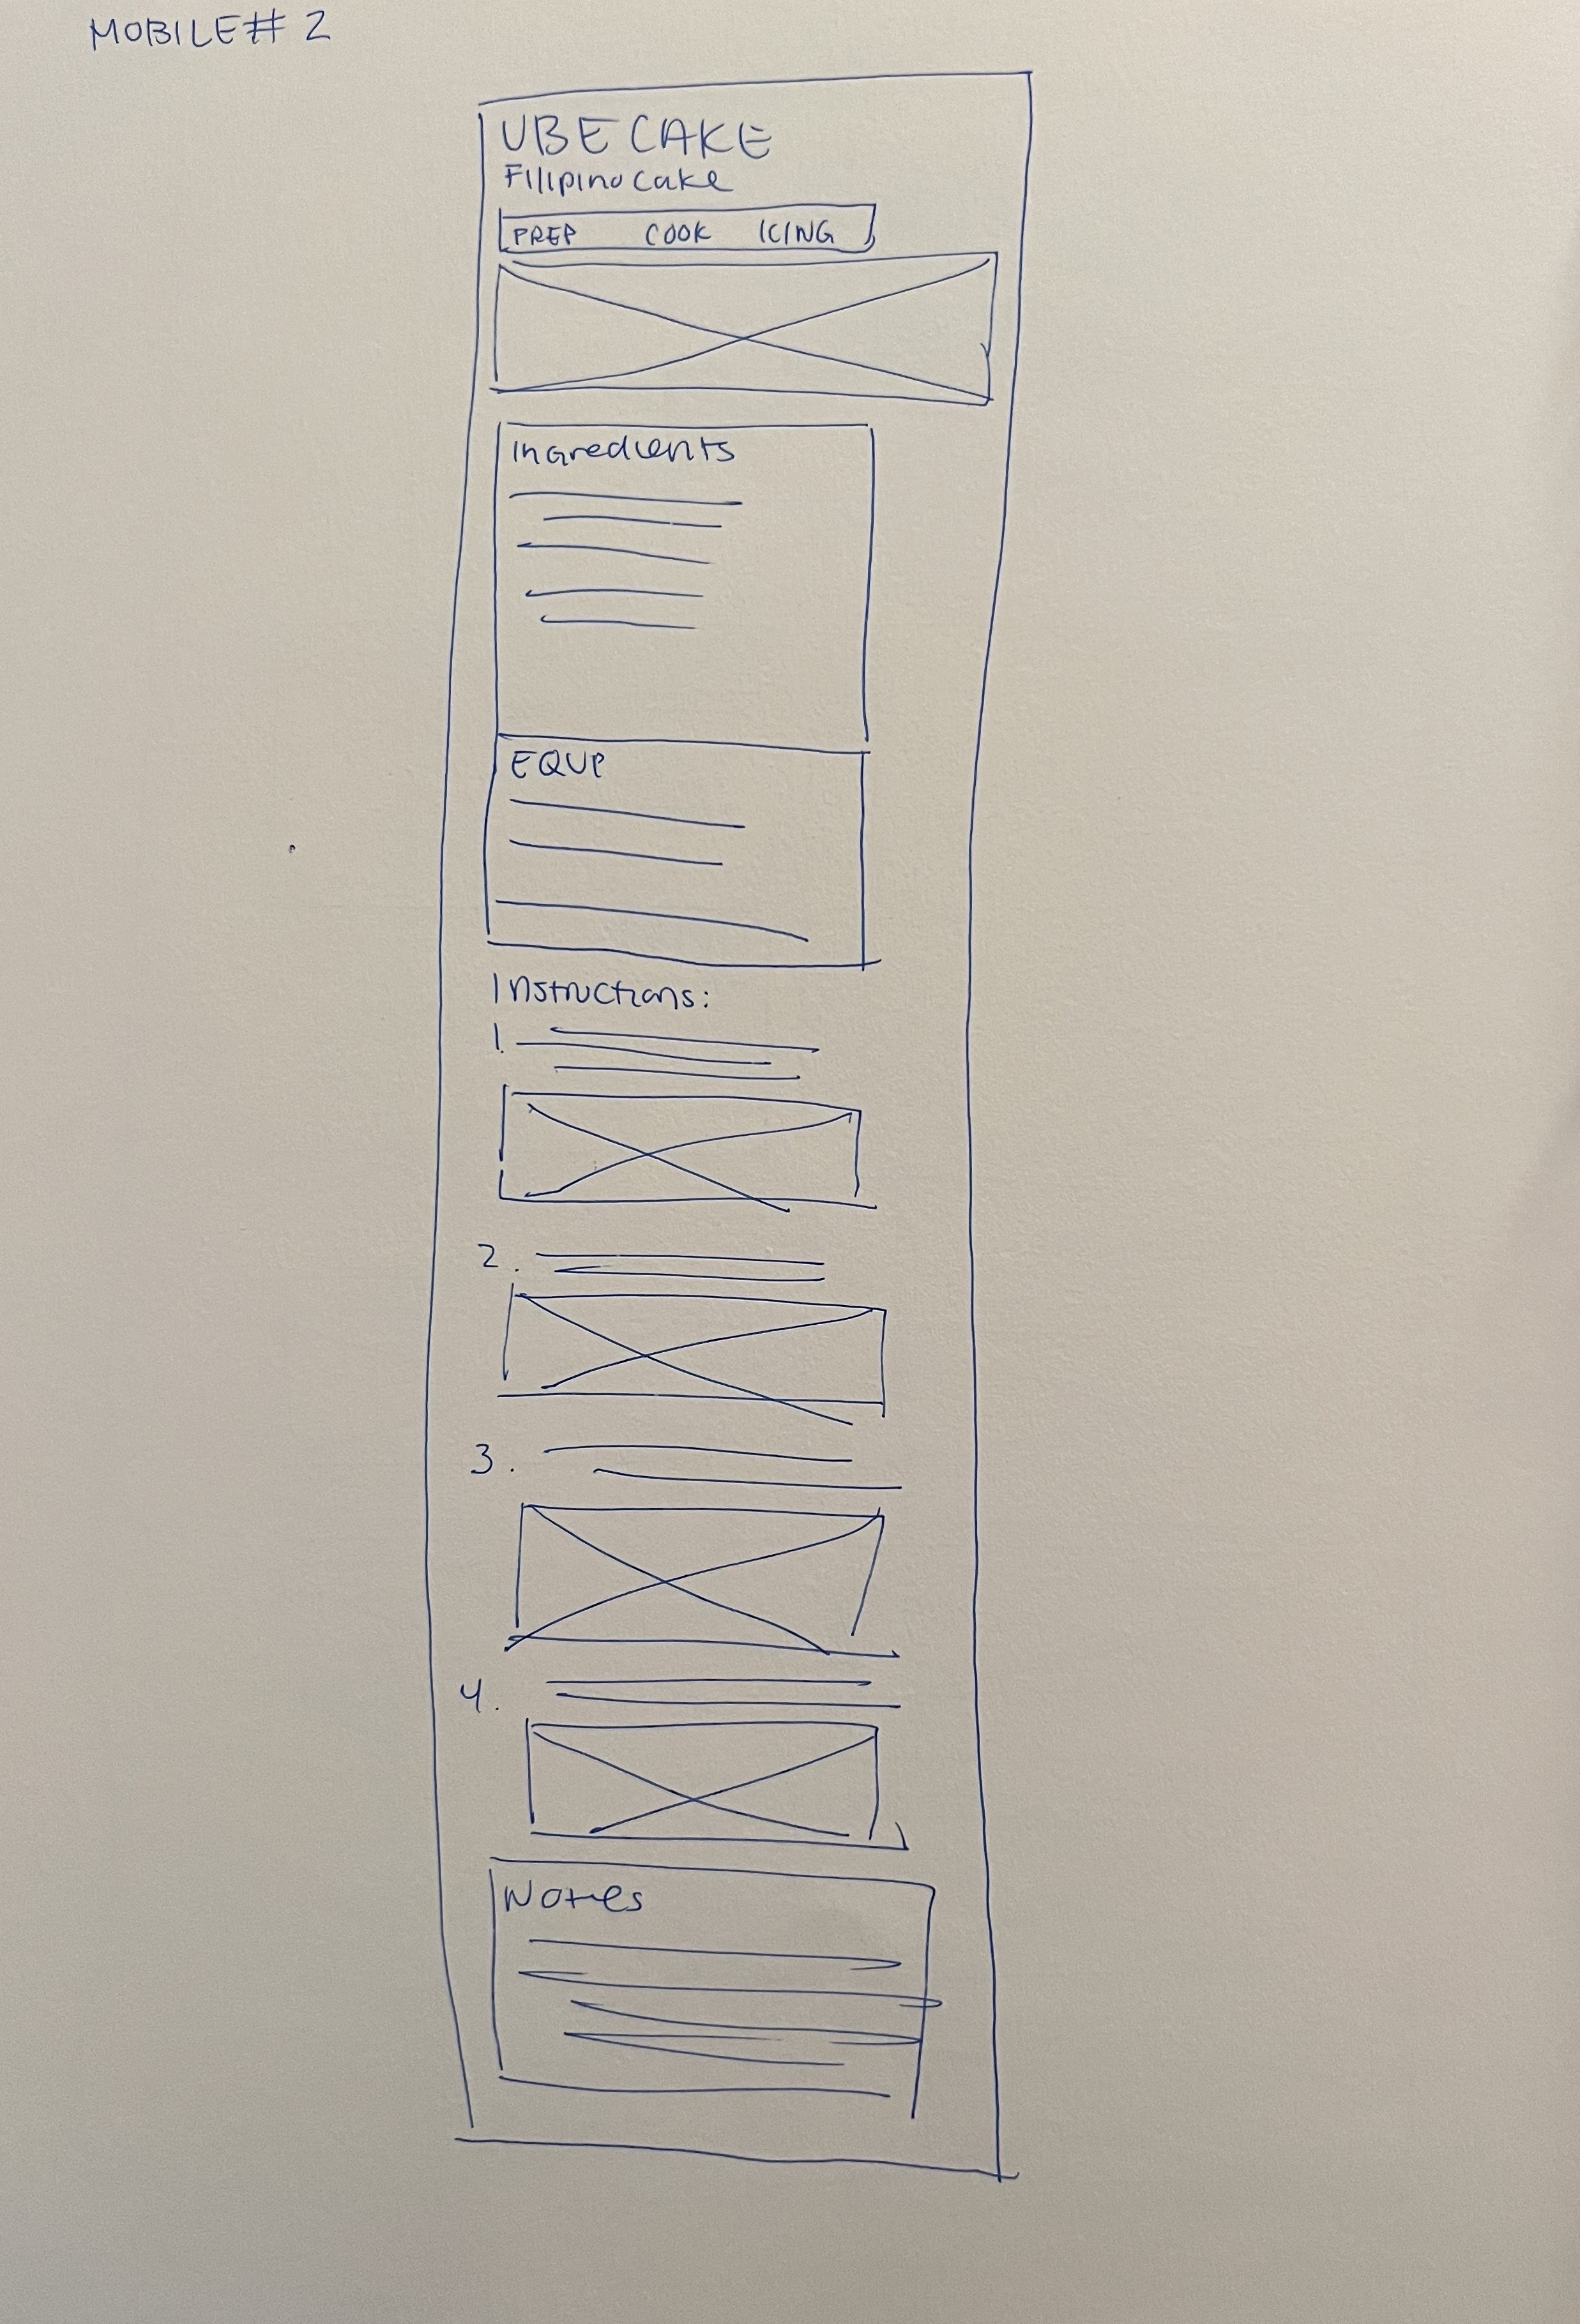 MOBILE # 2
UBE CAKE
Filipino cake
PREP COOK ICING
Ingredients
EQUP
Instructions:
1.
2.
3.
4.
Notes